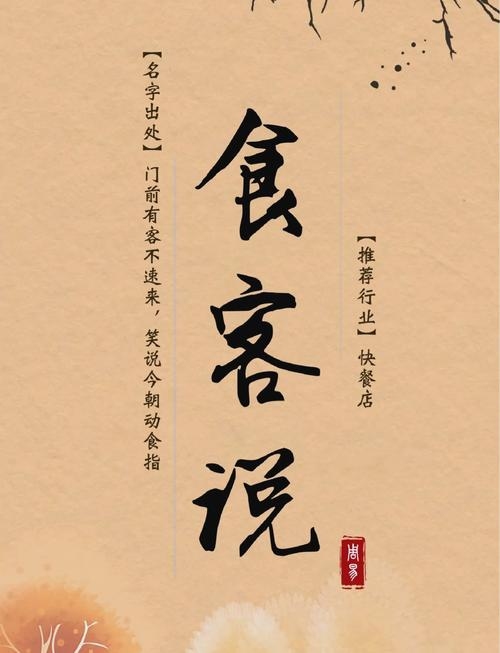 【推荐行业】快餐店
食客说
周易
【名字出处】门前有客不速来，笑说今朝动食指